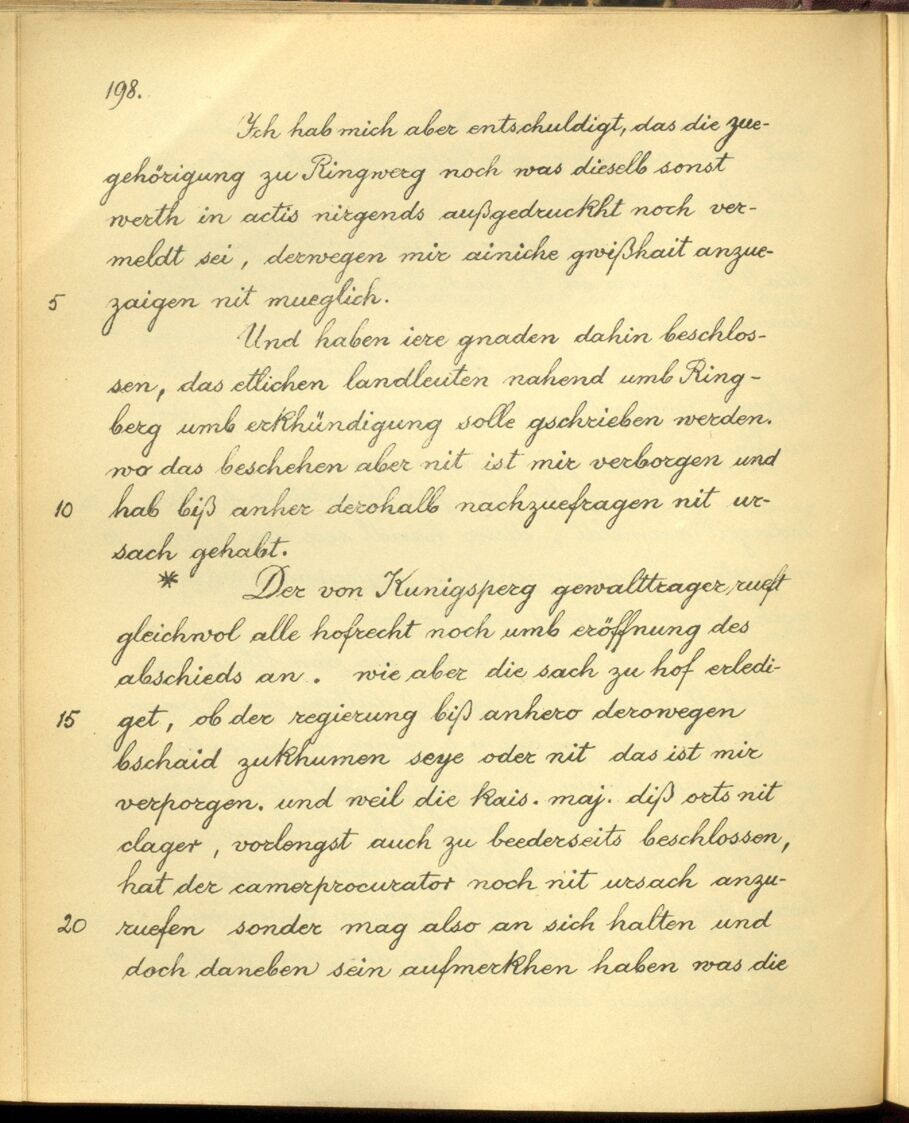 198.
Ich hab mich aber entschuldigt, das die zue-
gehörigung zu Ringwerg noch was dieselb sonst
werth in actis nirgends außgedruckht noch ver-
meldt sei, derwegen mir ainiche gwißhait anzue-
5 zaigen nit mueglich.
Und haben iere gnaden dahin beschlos-
sen, das etlichen landleuten nahend umb Ring-
berg umb erkhündigung solle gschrieben werden.
wo das beschehen aber nit ist mir verborgen und
10 hab biß anher derohalb nachzuefragen nit ur-
sach gehabt.
* Der von Kunigsperg gewalttrager rueft
gleichwol alle hofrecht noch umb eröffnung des
abschieds an. wie aber die sach zu hof erledi-
15 get, ob der regierung biß anhero derowegen
bschaid zukhumen seye oder nit das ist mir
verporgen. und weil die kais. maj. diß orts nit
clager, vorlengst auch zu beederseits beschlossen,
hat der camerprocurator noch nit ursach anzu-
20 ruefen sonder mag also an sich halten und
doch daneben sein aufmerkhen haben was die